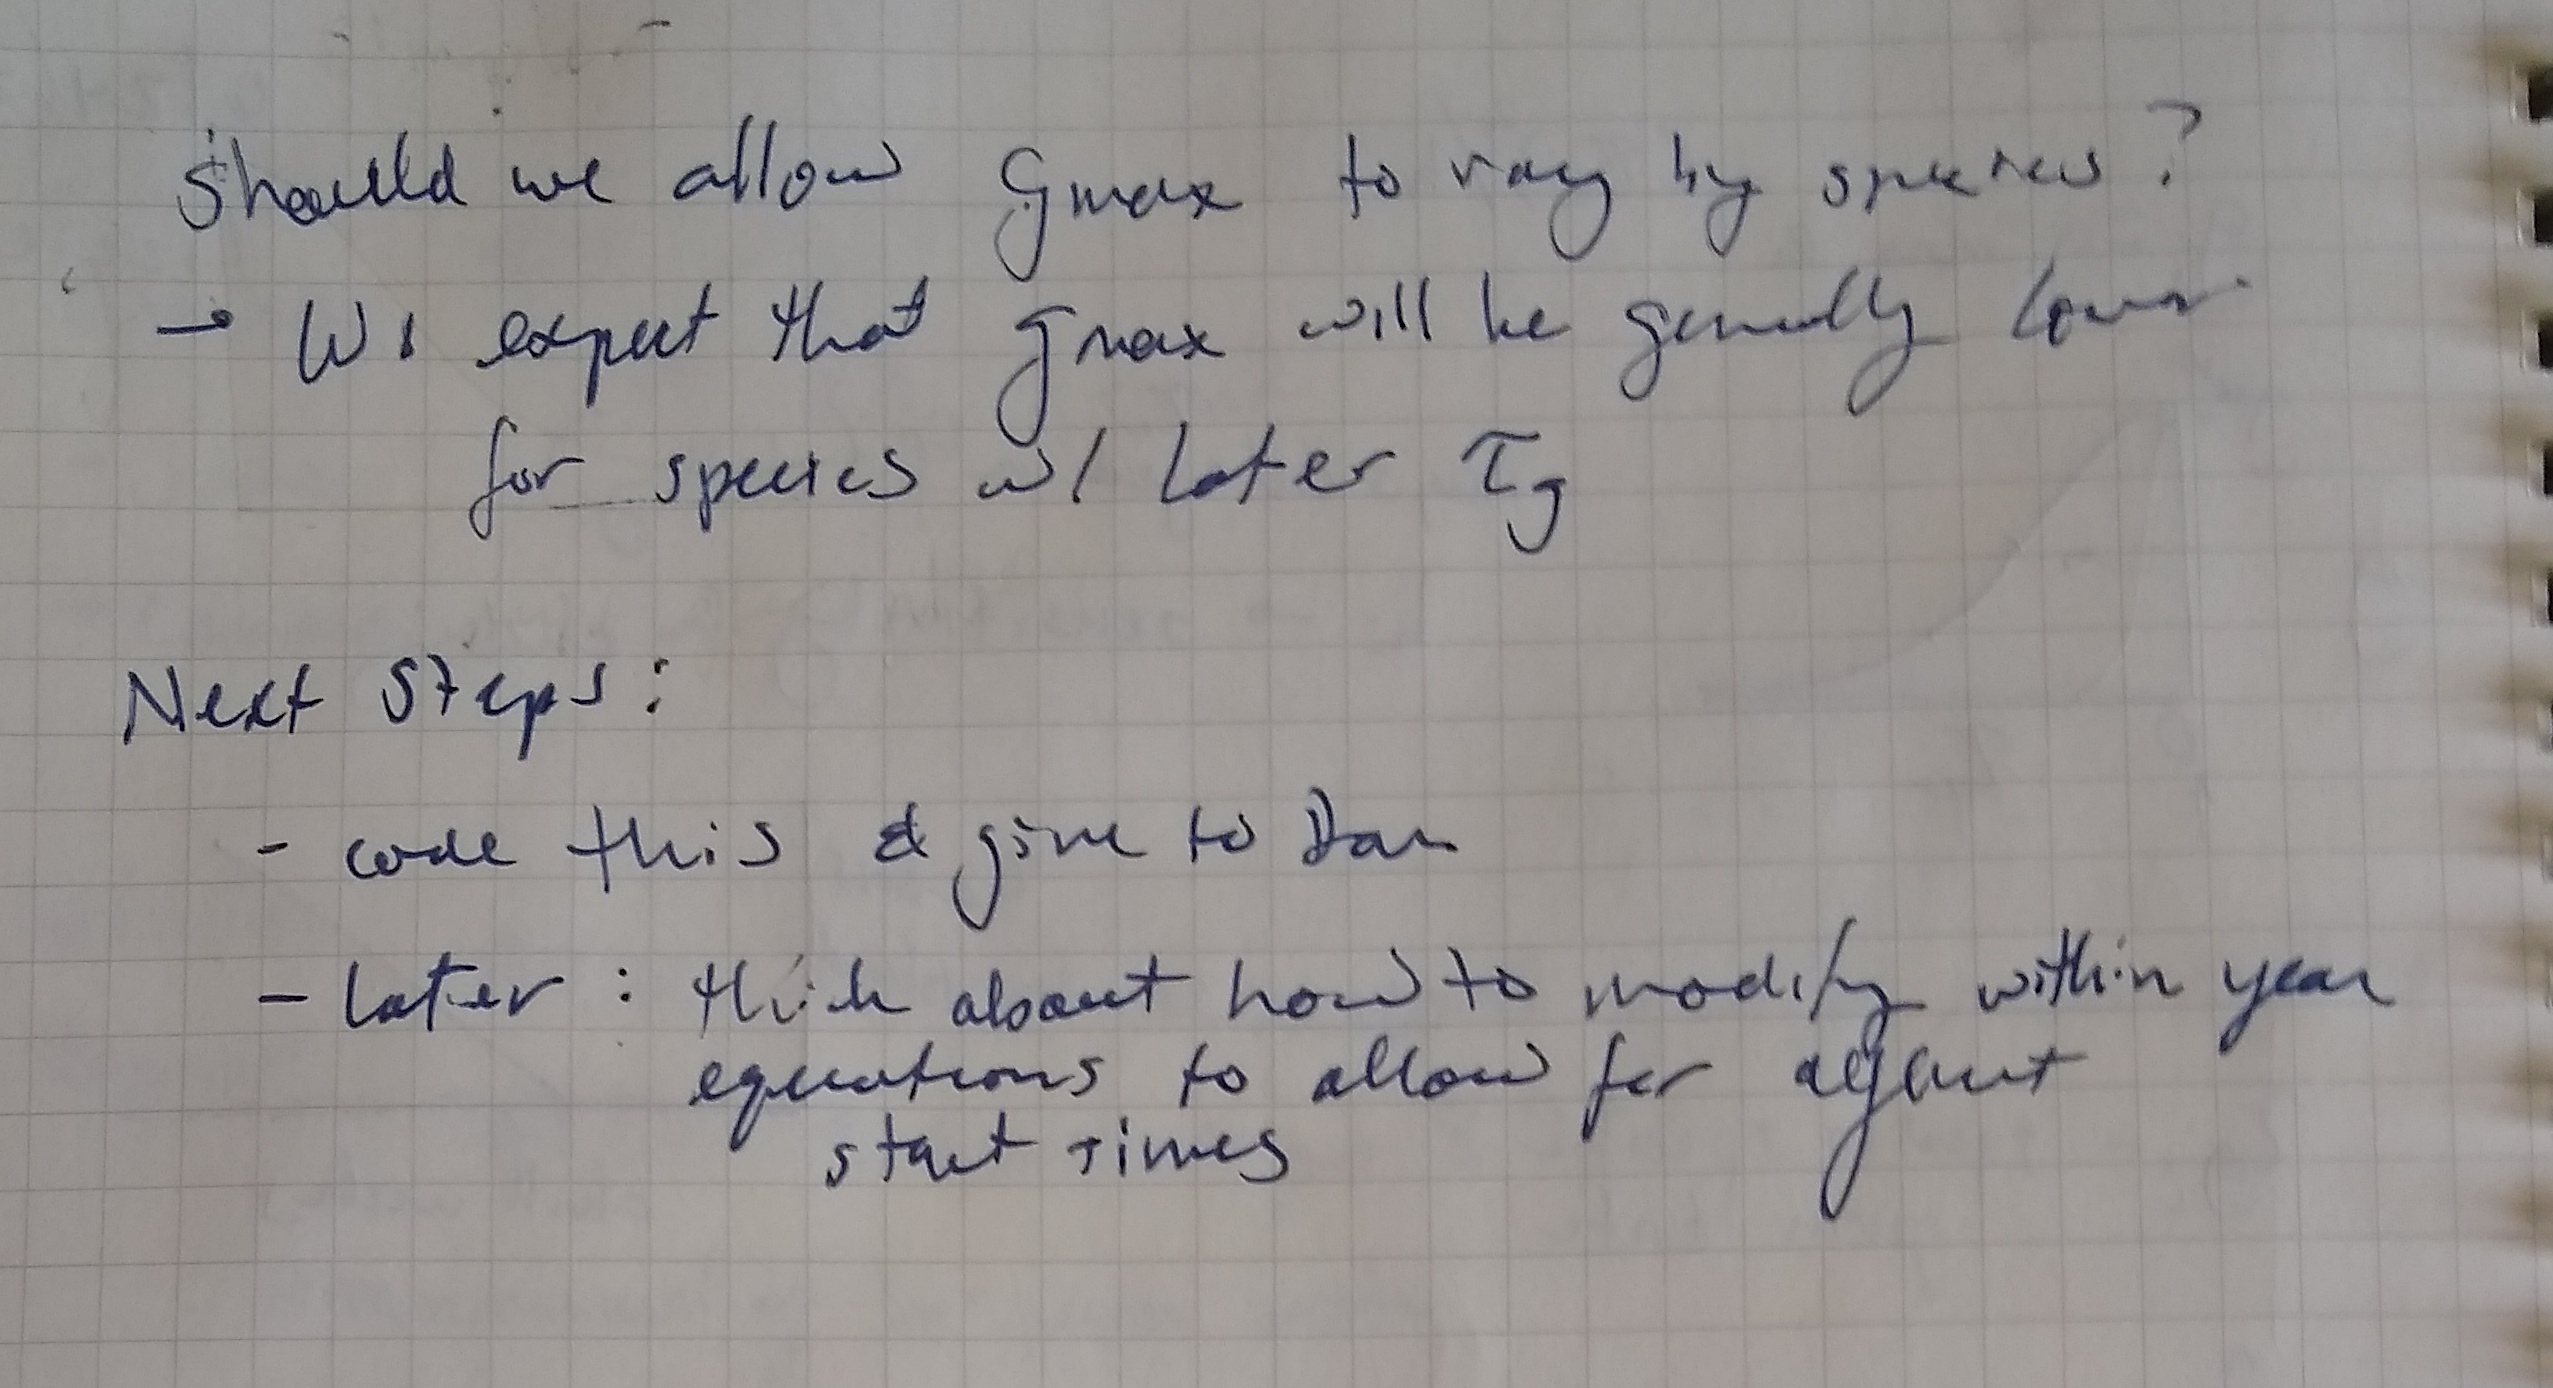 Should we allow gmax to vary by species?
→ We expect that gmax will be generally lower
for species w/ later τg
Next Steps:
- code this & give to Dan
- later: think about how to modify within year
equations to allow for
start times